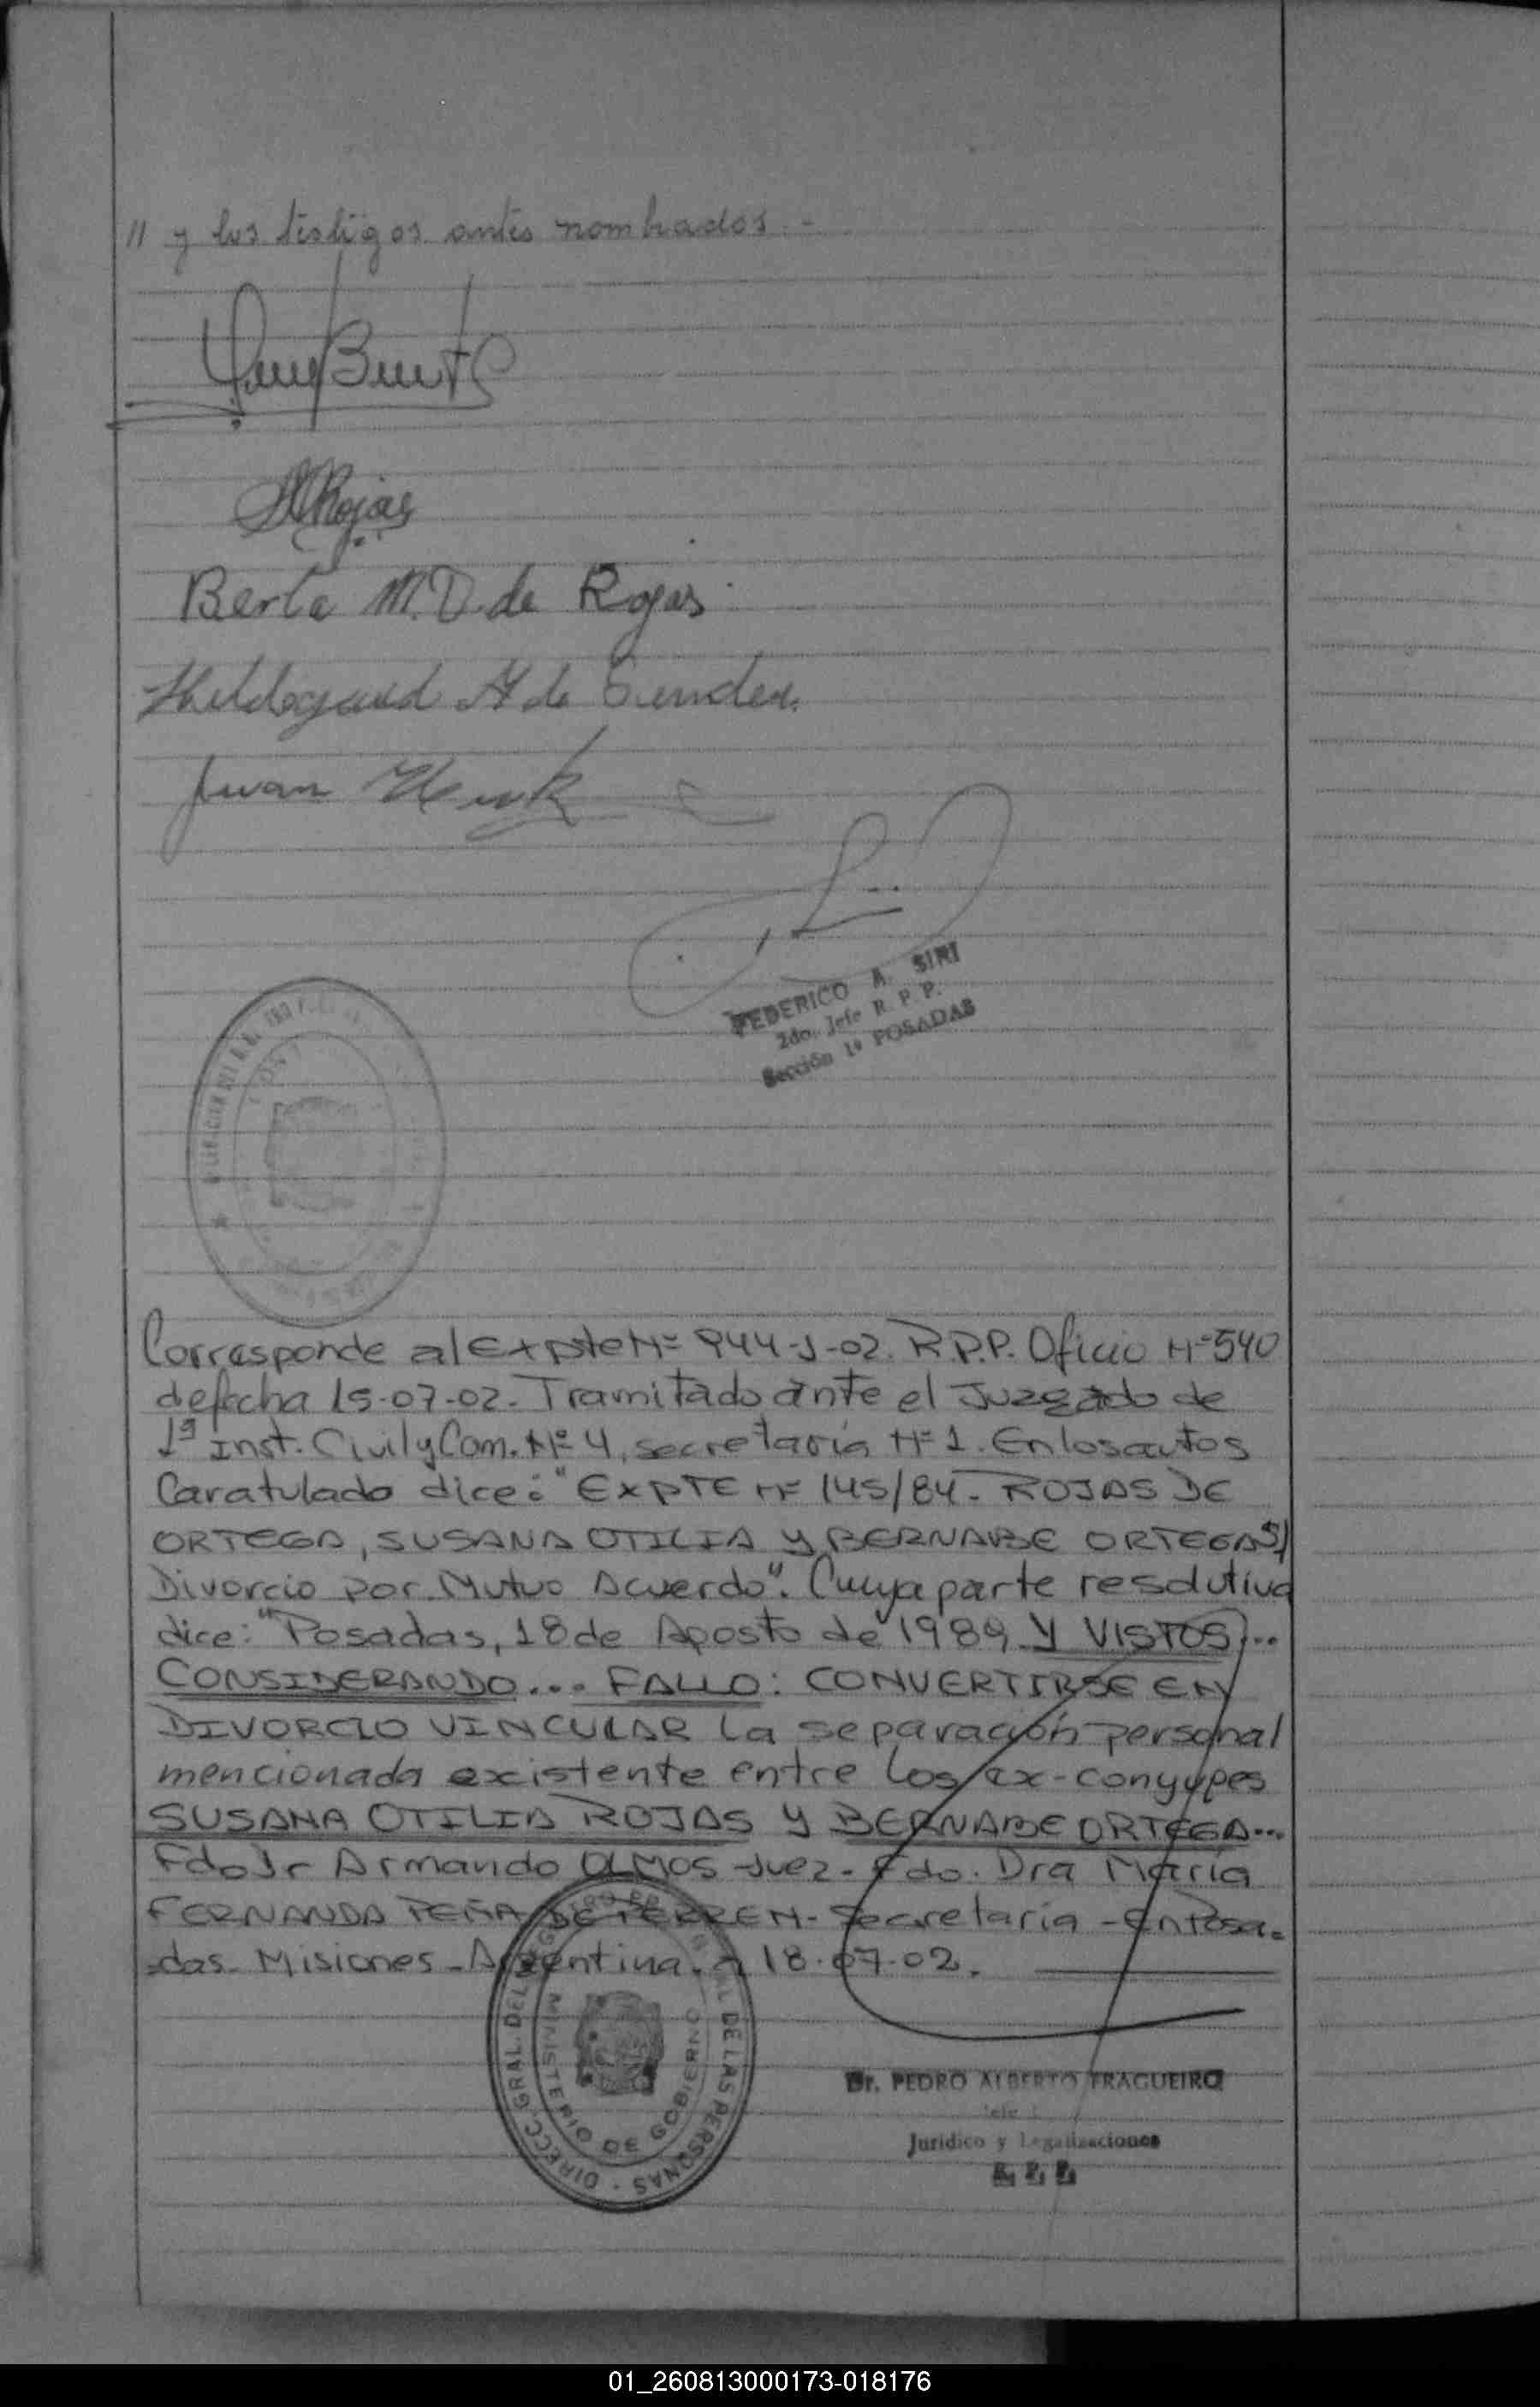 // y los testigos antes nombrados.-
Rojas
Berta M. D. de Rojas
Hildegard H de
Juan
FEDERICO A. SIRI
2do. Jefe R. P. P.
Sección 1ª POSADAS
Corresponde al Expte Nº 944-J-02. R.P.P. Oficio Nº 540
de fecha 15-07-02. Tramitado ante el Juzgado de
1ª Inst. Civil y Com. Nº 4, secretaría Nº 1. En los autos
Caratulado dice: "EXPTE Nº 145/84 - ROJAS DE
ORTEGA, SUSANA OTILIA Y BERNABE ORTEGA S/
Divorcio por Mutuo Acuerdo". Cuya parte resolutiva
dice: "Posadas, 18 de Agosto de 1989 Y VISTOS...
CONSIDERANDO... FALLO: CONVERTIRSE EN
DIVORCIO VINCULAR la separación personal
mencionada existente entre los ex-conyuges
SUSANA OTILIA ROJAS Y BERNABE ORTEGA...
Fdo Dr Armando OLMOS Juez - Fdo. Dra María
FERNANDA PEÑA DE PERREN - Secretaria - En Posa-
-das - Misiones - Argentina. a 18-07-02.
DIRECC. GRAL. DEL DE LAS PERSONAS
MINISTERIO DE GOBIERNO
Dr. PEDRO ALBERTO FRAGUEIRO
Jefe
Jurídico y Legalizaciones
01_260813000173-018176